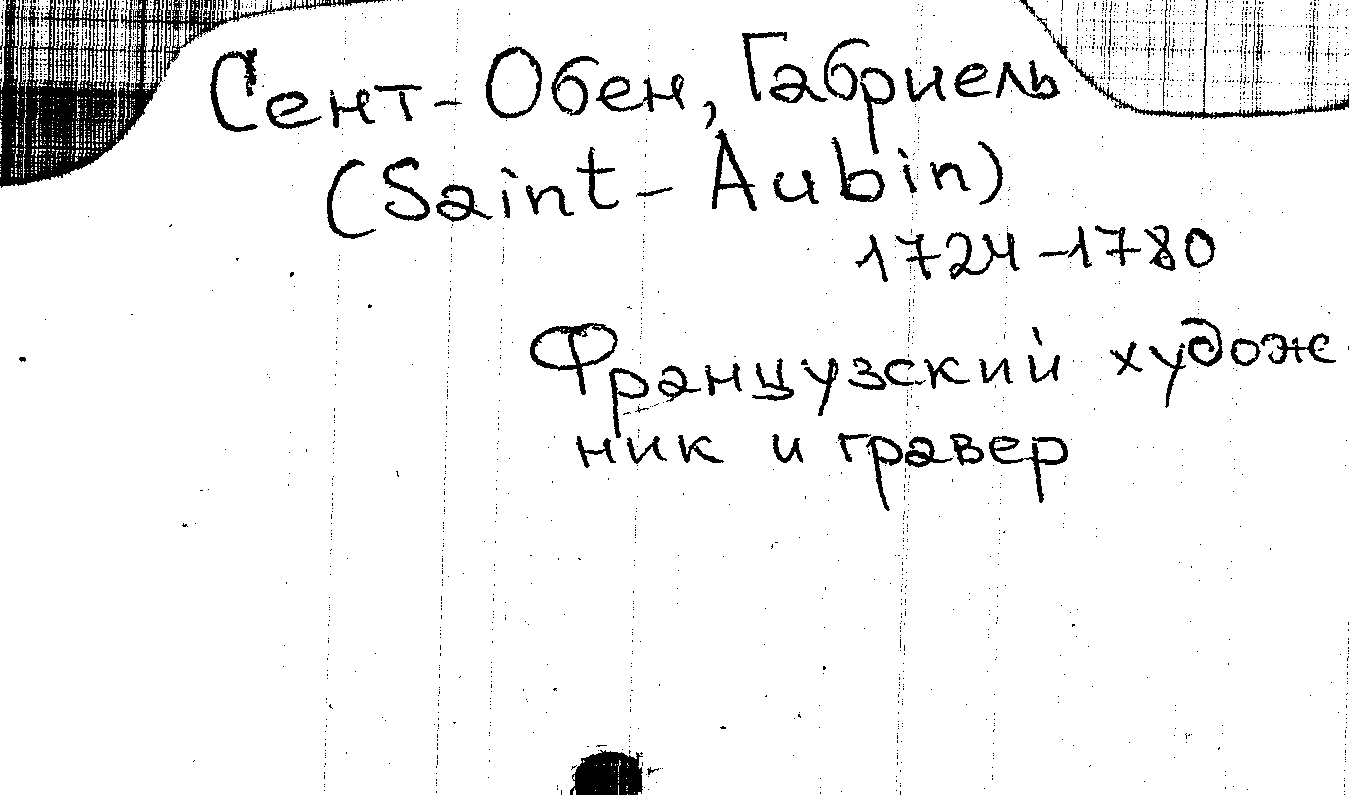 Сент-Обен, Габриель
(Saint-Aubin)
1724-1780
Французский худож
ник и гравер